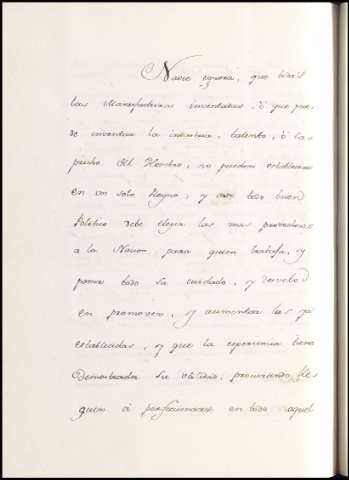 Nadie ignora, que todas
las Manufacturas inventadas, ó que pue-
de inventar la industria, talento, ó ca-
pricho del Hombre, no pueden establecerse
en un solo Reyno, y todo buen
Politico debe elegir las mas provechosas
a la Nacion para quien trabaja, y
poner todo su cuidado, y desvelo
en promover, y aumentar las ya
establecidas, y que la experiencia tiene
demostrada su utilidad, procurando lle-
guen á perfeccionarse en todo aquel